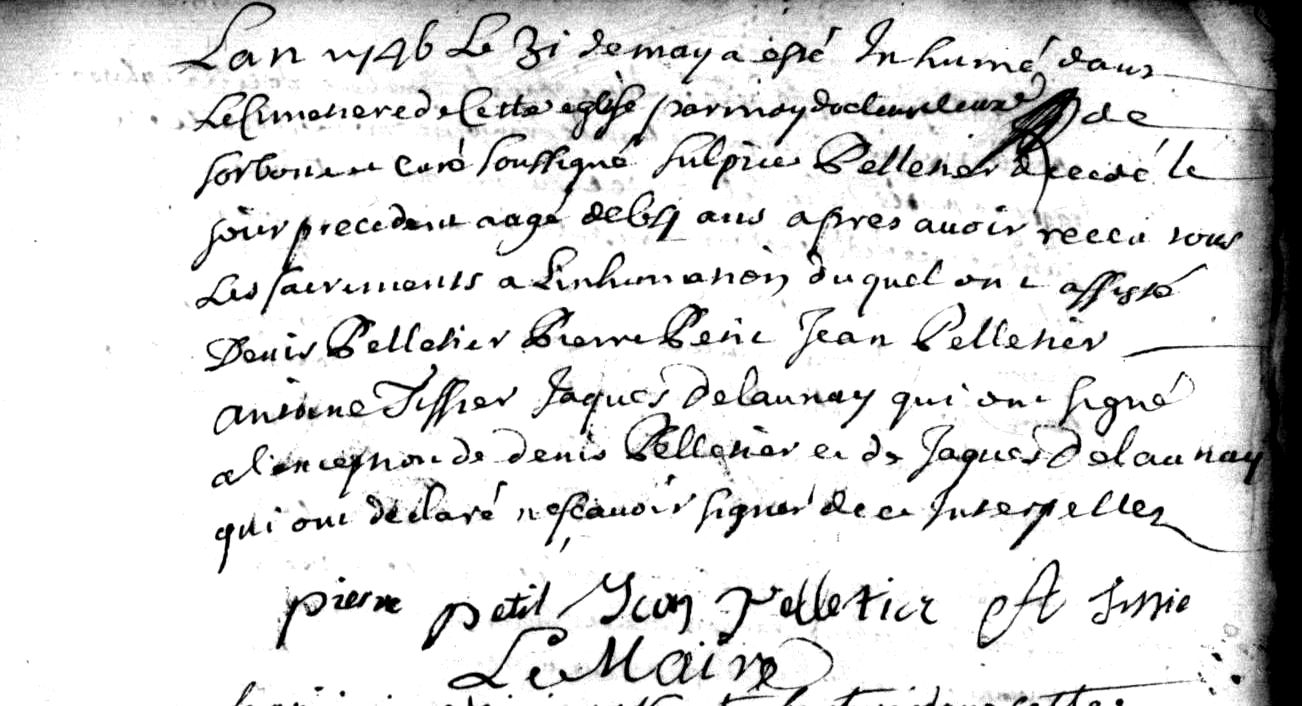 Lan 1746 Le 31 de may a esté Inhumé dans
Le Cimetiere de Cette eglise par moy docteur de
sorbonne et curé soussigné sulpice Pelletier decedé le
jour precedent aagé de ans apres avoir receu tous
Les sacrements a Linhumation duquel ont assisté
Denis Pelletier Pierre Petit Jean Pelletier
antoine Tissier Jaques Delaunay qui ont signé
a l'exception de denis Pelletier et de Jaques Delaunay
qui ont declaré ne sçavoir signer de ce Interpellez
pierre petit Jean pelletier A tissie
Le Maire